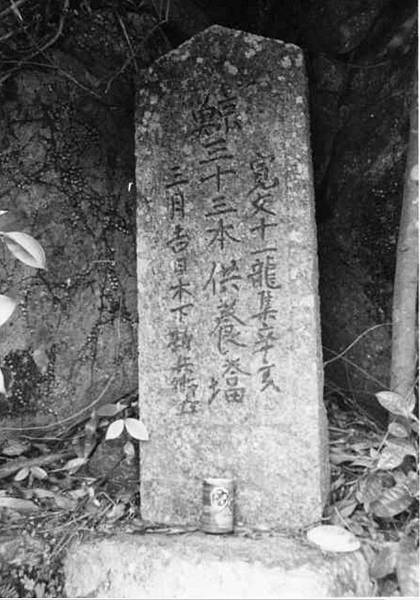 寛文十一龍集辛亥
鯨三十三本供養墖
三月吉日木下兵衛